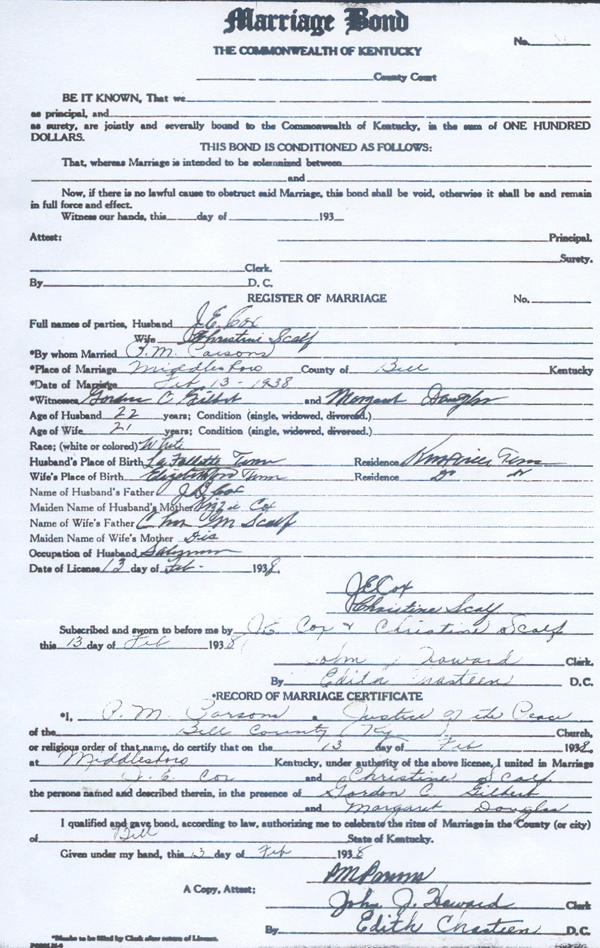 Marriage Bond
No.
THE COMMONWEALTH OF KENTUCKY
County Court
BE IT KNOWN, That we
as principal, and
as surety, are jointly and severally bound to the Commonwealth of Kentucky, in the sum of ONE HUNDRED
DOLLARS.
THIS BOND IS CONDITIONED AS FOLLOWS:
That, whereas Marriage is intended to be solemnized between
and
Now, if there is no lawful cause to obstruct said Marriage, this bond shall be void, otherwise it shall be and remain
in full force and effect.
Witness our hands, this day of 193
Attest: Principal.
Surety.
Clerk.
By D. C.
REGISTER OF MARRIAGE No.
Full names of parties, Husband J. E. Cox
Wife Christine Scalf
*By whom Married P. M. Parsons
*Place of Marriage Middlesboro County of Bell Kentucky
*Date of Marriage Feb 13 - 1938
*Witnesses Gordon C Gilbert and Margaret Douglas
Age of Husband 22 years; Condition (single, widowed, divorced.)
Age of Wife 21 years; Condition (single, widowed, divorced.)
Race; (white or colored) White
Husband's Place of Birth La Follette Tenn Residence Knoxville Tenn
Wife's Place of Birth Elizabethton Tenn Residence Do
Name of Husband's Father J. D. Cox
Maiden Name of Husband's Mother Cox
Name of Wife's Father M Scalf
Maiden Name of Wife's Mother
Occupation of Husband Salesman
Date of License 13 day of Feb - 1938.
J. E. Cox
Christine Scalf
Subscribed and sworn to before me by J. E. Cox & Christine Scalf
this 13 day of Feb 1938
John J. Howard Clerk.
By Edith Chasteen D.C.
*RECORD OF MARRIAGE CERTIFICATE
*I, P. M. Parsons a Justice of the Peace
of the Bell County Ky Church,
or religious order of that name, do certify that on the 13 day of Feb 1938,
at Middlesboro Kentucky, under authority of the above license, I united in Marriage
J. E. Cox and Christine Scalf
the persons named and described therein, in the presence of Gordon C. Gilbert
and Margaret Douglas
I qualified and gave bond, according to law, authorizing me to celebrate the rites of Marriage in the County (or city)
of Bell State of Kentucky.
Given under my hand, this 13 day of Feb 1938
P M Parsons
A Copy, Attest; John J. Howard Clerk
By Edith Chasteen D.C.
*Blanks to be filled by Clerk after return of License.